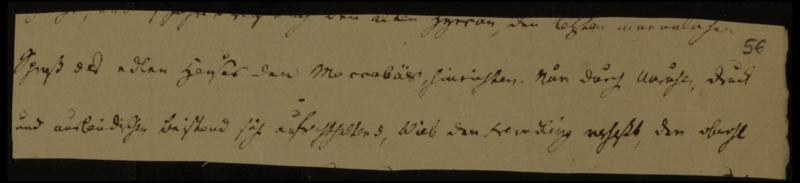 den alten Hyrcan, den letzten maennlichen
56
Sproß des edlen Hauses der Maccabäer, hinrichten. Nur durch Unruhe, Druck
und ausländischen Beistand sich aufrechthaltend, blieb den verhaßt, den obwohl